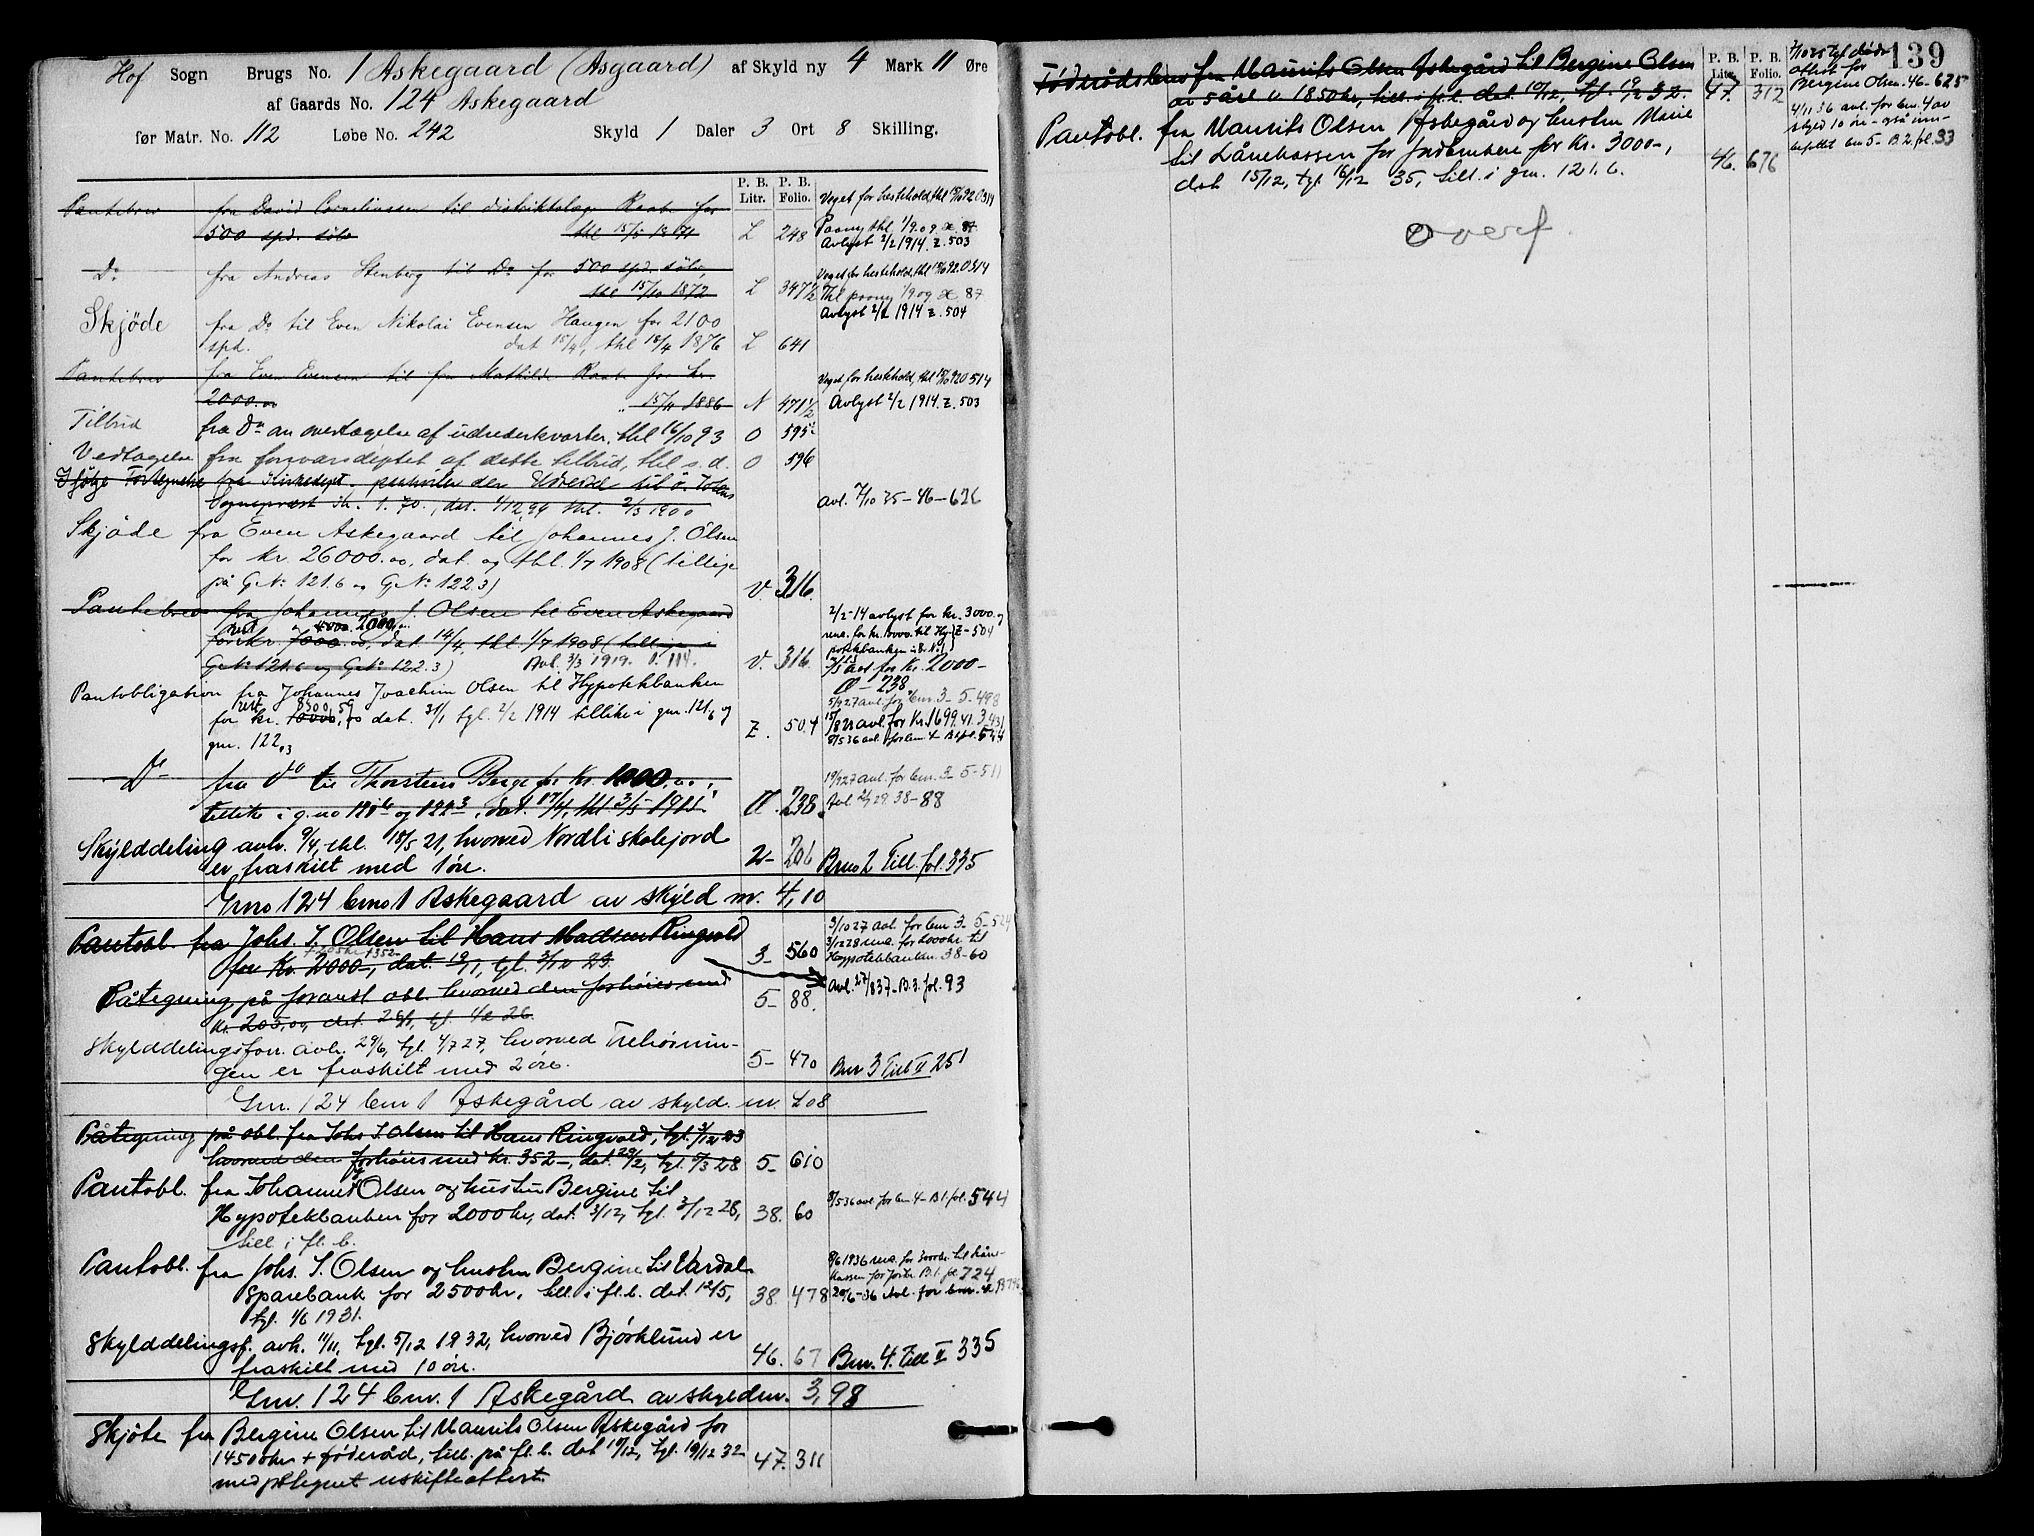 Hof Sogn Brugs No. 1 Askegaard (Asgaard) af Skyld ny 4 Mark 11 Øre
af Gaards No. 124 Askegaard
før Matr. No. 112 Løbe No. 242 Skyld 1 Daler 3 Ort 8 Skilling.
P. B. Litr. P. B. Folio.
Pantebrev fra David Corneliussen til distriktslæge Raabe for
500 spd. sølv thl 15/5 1871 L 248
Veget for hestehold, thl 18/10 92 O 514
Paany thl 1/9 09 æ 87
Avlyst 2/2 1914. Z. 503
Do fra Andreas Stenberg til Do for 500 spd. sølv,
thl 15/10 1872 L 347 1/2
Veget for hestehold, thl 18/10 92 O 514
Thl paany 1/9 09 æ 87
Avlyst 2/2 1914 Z. 504
Skjöde fra Do til Even Nikolai Evensen Haugen for 2100
spd. dat 15/4, thl 18/4 1876 L 641
Pantebrev fra Even Evensen til fru Mathilde Raabe for kr.
2000.00 " 15/11 1886 N 471 1/2
Veget for hestehold, thl 18/10 92 O 514
Avlyst 2/2 1914. Z. 503
Tilbud fra Do an overtagelse af udrederkvarter, thl 16/10 93 O 595
Vedtagelse fra forsvarsdeptet af dette tilbud, thl s. d. O 596
Ifølge Fortegnelse fra Kirkedept.
Sogneprest Kr. 1.70., dat. 4/12 99 thl. 2/3 1900
Avl. 7/10 35 - 46 - 626
Skjöde fra Even Askegaard til Johannes J. Olsen
for Kr. 26000.00, dat. og thl. 1/7 1908 (tillige
på G.No 121.6 og G.No 122.3) V. 316.
Pantebrev fra Johannes J. Olsen til Even Askegaard
rest 4000 2000,00
for Kr. 7000.00, dat. 14/4, thl 1/7 1908 (tillige i
G.No 121.6 og G.No 122.3) Avl. 3/3 1919. V. 316.
2/2-14 avlyst for kr. 3000. og
Z - 504
for Kr. 2000 -
Æ - 238
Pantobligation fra Johannes Joachim Olsen til Hypotekbanken
rest 8300,59
for kr. 10000,00 dat. 31/1 tgl. 2/2 1914 tillike i gnr. 121,6 og
gnr. 122,3 Z. 504
5/9 27 avl. for bnr. 3 - 5 - 498
avl. for Kr. 1699.41
8/5 36 avl. for bnr. 4 B 1 fol. 544
Do fra do til Thorstein Berge for Kr 1000.00,
tillike i g.no 121,6 og 122,3, dat. 17/4, thl 3/5 1915 Æ. 238.
19/9 27 avl. for bnr. 3 - 5 - 511
38 - 88
Skylddeling avh. 9/4, thl. 18/5 21, hvorved Nordli skolejord
er fraskilt med 1 öre. 2 - 206 Brno 2 Till. fol. 335
Gno 124 bno 1 Askegaard av skyld m. 4,10
Pantobl. fra Johs. J. Olsen til Hans Madsen Ringvold
for Kr. 2000 -, dat. 19/11, tgl. 3/12 23. 3 - 560
3/10 27 avl. for bnr 3 - 5 - 524
3/12 28 for 2000 kr. til
Hypotekbanken. 38 - 60
Påtegning på foranst. obl. hvorved den forhöies med
kr. 205,00, 5 - 88.
Avl. 27/8 37 - B. 3. fol. 93
Skylddelingsforr. avh. 29/6, tgl. 4/7 27, hvorved
gen er fraskilt med 2 öre. 5 - 470 Bnr 3 Till II 251
Gnr. 124 bnr 1 Askegård av skyld m. 4.08
Påtegning på obl. fra Johs J. Olsen til Hans Ringvold, tgl. 3/12 23
hvorved den forhöies med kr. 352 -, dat. 29/2, tgl. 5/3 28 5 - 610
Pantobl. fra Johannes J. Olsen og hustru Bergine til
Hypotekbanken for 2000 kr, dat. 3/12, tgl. 3/12 28, 38. 60
till. i fl. b.
8/5 36 avl. for bnr 4 - B 1. fol. 544
Pantobl. fra Johs. J. Olsen og hustru Bergine til Vardal
Sparebank for 2500 kr, till. i fl.b. dat. 12/5, 38. 478
tgl. 1/6 1931.
8/6 1936 for 3000 kr. til Låne-
kassen for Jordbr. B. 1. fol. 724
20/6-36 Avl. for bnr. 4
Skylddelingsf. avh. 11/11, tgl. 5/12 1932, hvorved Bjørklund er
fraskilt med 10 öre. 46. 67 Bnr. 4. Till II 335
Gnr. 124 bnr. 1 Askegård av skyld m. 3,98
Skjöte fra Bergine Olsen til Maurits Olsen Askegård for
14500 kr + föderåd, till. på fl. b. dat 10/12, tgl. 19/12 32 47. 311
med påtegnet uskifteattest.
139
P. B. Litr. P. B. Folio.
Föderådsbrev fra Maurits Olsen Askegård til Bergine Olsen
av 5 årl. v. 1850 kr, till. i fl. b. dat. 10/12, tgl. 19/12 32. 47. 312
7/10 35 tgl. døds-
attest for
Bergine Olsen. 46 - 625
Pantobl. fra Maurits Olsen Askegård og hustru Marie
til Lånekassen for Jordbrukere for kr. 3000 -,
dat 15/12, tgl. 16/12 35, till. i gnr. 121.6. 46. 676
4/11 36 avl. for bnr. 4 av
skyld 10 öre - også inn-
befattet bnr 5 - B 2 fol. 33
overf.